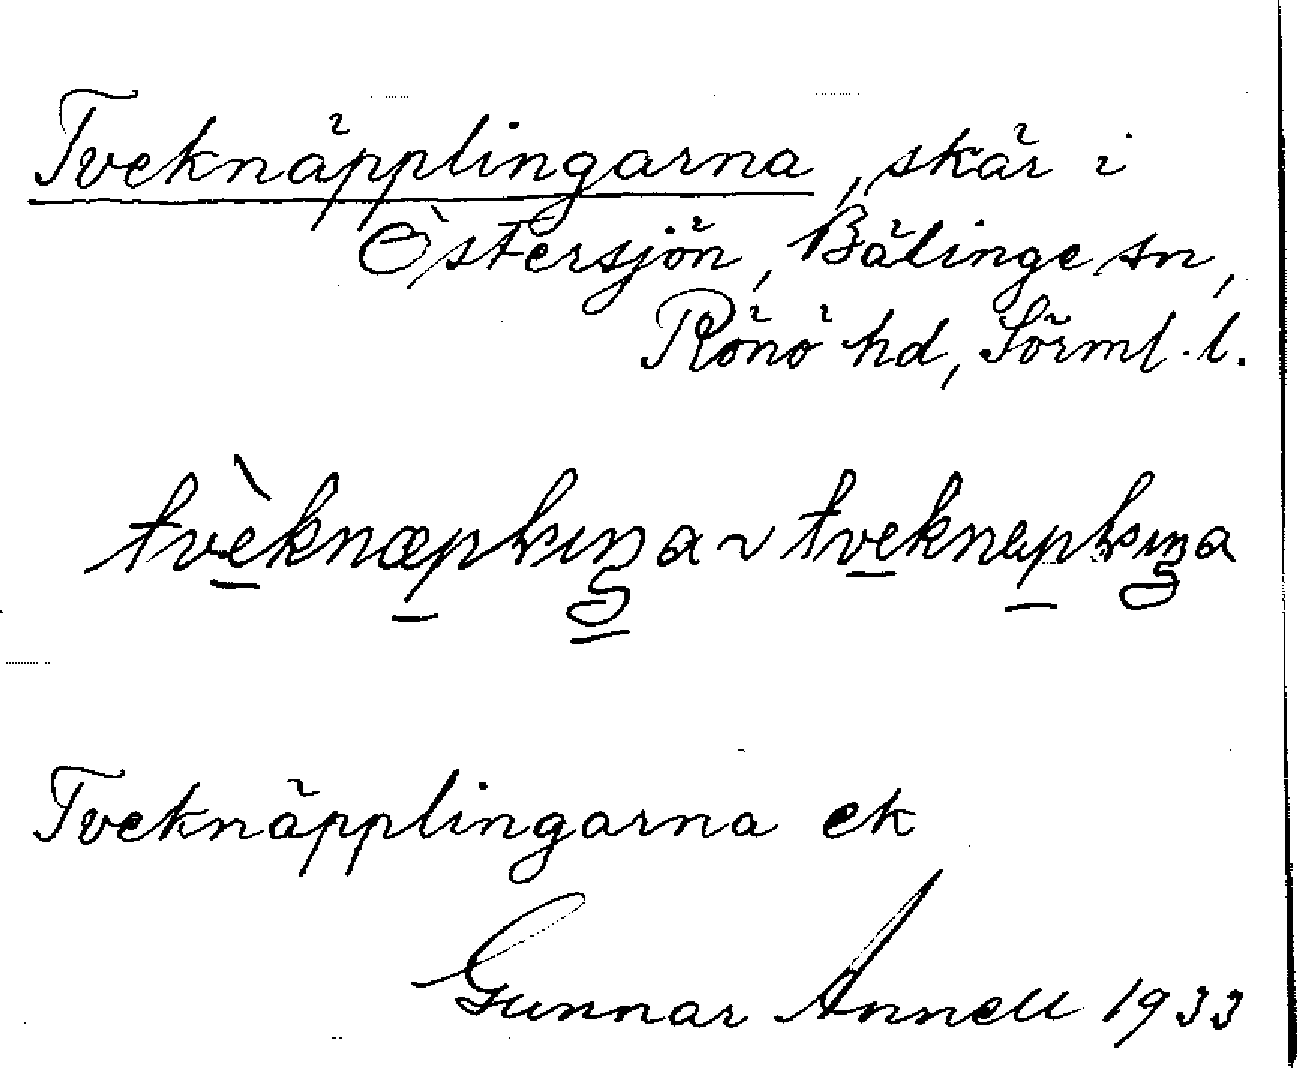 Tveknäpplingarna, skär i
Östersjön, Bälinge sn,
Rönö hd, Sörml. l.
tvèknæplıŋa ~ tveknæplıŋa
Tveknäpplingarna ek
Gunnar Annell 1933